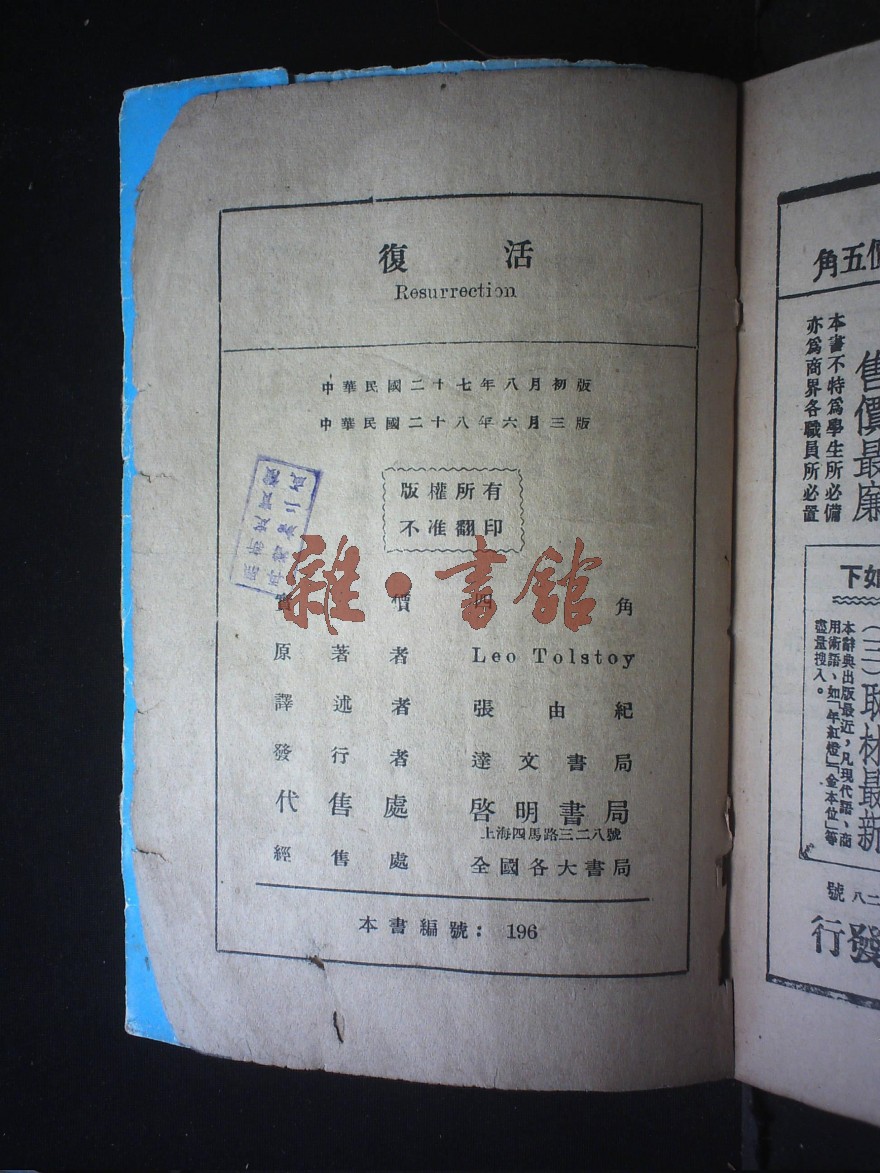 復活
Resurrection
中華民國二十七年八月初版
中華民國二十八年六月三版
版權所有
不准翻印
雜·書館
實價四角
原著者 Leo Tolstoy
譯述者 張由紀
發行者 達文書局
代售處 啓明書局
上海四馬路三二八號
經售處 全國各大書局
本書編號： 196
價五角
本書不特爲學生所必備
亦爲商界各職員所必置
售價最廉
如下
(三)取材最新
本辭典出版最近，凡現代語、商
用術語、如「年紅燈」「金本位」等
盡量搜入。
二八號
發行